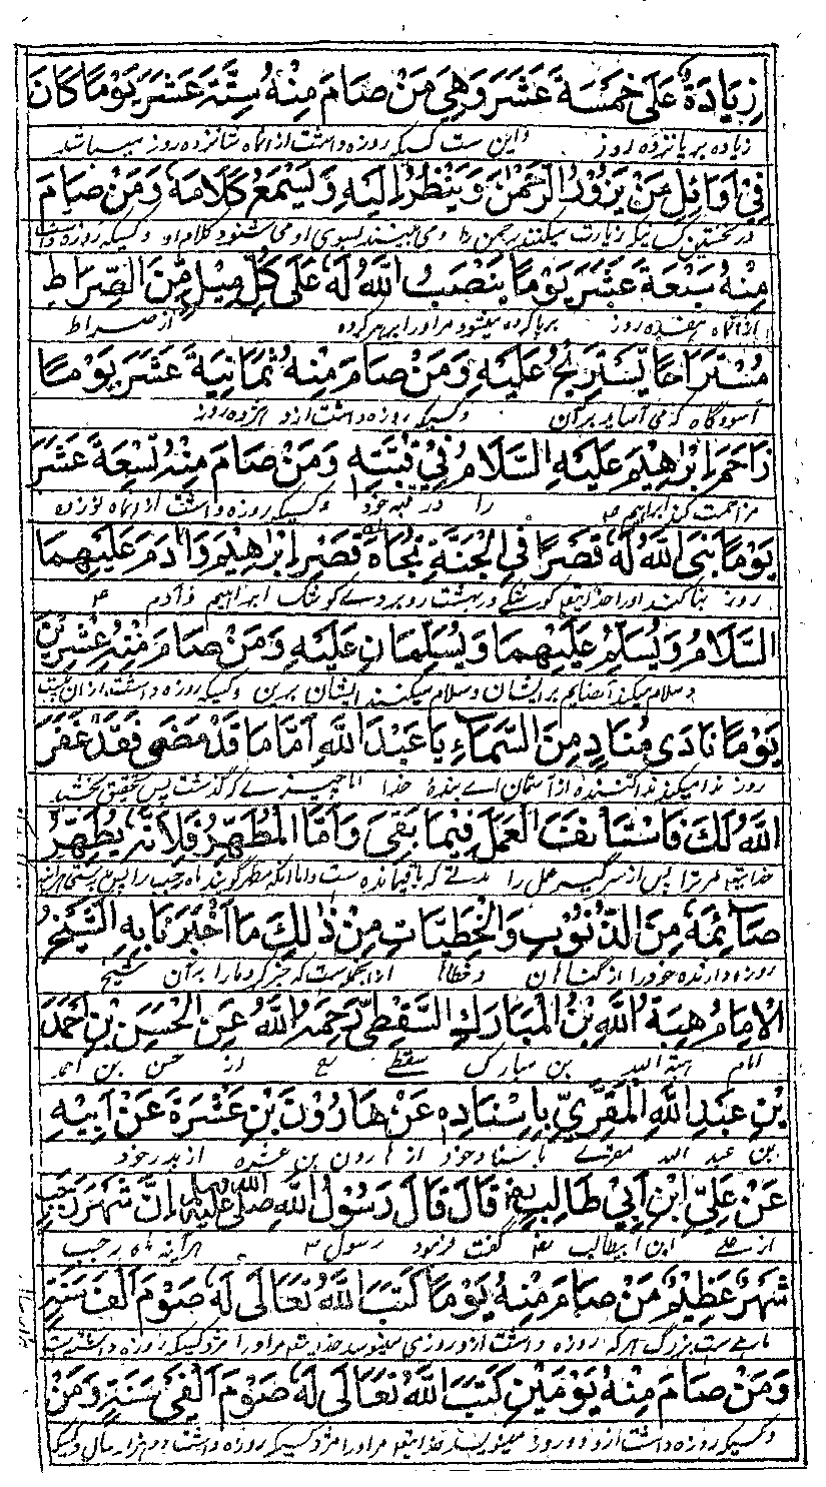 زِيَادَةٌ عَلَى خَمْسَةَ عَشَرَ وَهِيَ مَنْ صَامَ مِنْهُ سِتَّةَ عَشَرَ يَوْمًا كَانَ
زیاده بر پانزده روز واین ست کسیکه روزه داشت ازانماه شانزده روز میباشد
فِيْ اَوَائِلِ مَنْ يَزُوْرُ الرَّحْمٰنَ وَيَنْظُرُ اِلَيْهِ وَيَسْمَعُ كَلَامَهُ وَمَنْ صَامَ
در نخستین کسانیکه زیارت میکنند رحمن را ومی بینند بسوی او می شنوند کلام او وکسیکه روزه داشت
مِنْهُ سَبْعَةَ عَشَرَ يَوْمًا يَنْصَبُ اللّٰهُ لَهُ عَلَى كُلِّ مِيْلٍ مِّنَ الصِّرَاطِ
ازانماه هفتده روز برپا کرده میشود مر اورا بر هر کروه از صراط
مُسْتَرَاحًا يَّسْتَرِيْحُ عَلَيْهِ وَمَنْ صَامَ مِنْهُ ثَمَانِيَةَ عَشَرَ يَوْمًا
آسودگاه که می آساید بر آن وکسیکه روزه داشت ازو هژده روز
زَاحَمَ اِبْرَاهِيْمَ عَلَيْهِ السَّلَامُ فِيْ قُبَّتِهِ وَمَنْ صَامَ مِنْهُ تِسْعَةَ عَشَرَ
مزاحمت کند ابراهیم را در قبه خود وکسیکه روزه داشت ازانماه نوزده
يَوْمًا بَنَى اللّٰهُ لَهُ قَصْرًا فِي الْجَنَّةِ تُجَاهَ قَصْرِ اِبْرَاهِيْمَ وَاٰدَمَ عَلَيْهِمَا
روز بنا کند اورا خدایتعالی کوشکی در بهشت روبروے کوشک ابراهیم وآدم
السَّلَامُ وَيُسَلِّمُ عَلَيْهِمَا وَيُسَلِّمَانِ عَلَيْهِ وَمَنْ صَامَ مِنْهُ عِشْرِيْنَ
وسلام میکند آن صایم بر ایشان وسلام میکنند ایشان برین وکسیکه روزه داشت ازان بیست
يَوْمًا نَادَى مُنَادٍ مِنَ السَّمَآءِ يَا عَبْدَ اللّٰهِ اَمَّا مَا قَدْ مَضَى فَقَدْ غَفَرَ
روز ندا میکند ندا کننده از آسمان اے بندهٔ خدا اما چیزے که گذشت پس تحقیق بخشید
اللّٰهُ لَكَ فَاسْتَأْنِفِ الْعَمَلَ فِيْمَا بَقِيَ وَاَمَّا الْمُطَهِّرُ فَلِاَنَّهُ يُطَهِّرُ
خدایتعالی مر ترا پس از سر گیر عمل را مدتے که باقیمانده ست واما انکه مطهر گویند ماه رجب را پس
صَآئِمَهُ مِنَ الذُّنُوْبِ وَالْخَطِيْئَاتِ مِنْ ذٰلِكَ مَا اَخْبَرَنَا بِهِ الشَّيْخُ
روزه دارنده خود را از گناهان وخطاها ازانجمله است که خبر کرد مارا به آن شیخ
الْاِمَامُ هِبَةُ اللّٰهِ بْنُ الْمُبَارَكِ السَّقَطِيُّ رَحِمَهُ اللّٰهُ عَنِ الْحَسَنِ بْنِ اَحْمَدَ
امام هبة الله بن مبارک سقطے رح از حسن بن احمد
بْنِ عَبْدِ اللّٰهِ الْمَقَرِّيِّ بِاِسْنَادِهِ عَنْ هَارُوْنَ بْنِ عَنْتَرَةَ عَنْ اَبِيْهِ
بن عبد الله مقرئے باسناد خود از هارون بن عنتره از پدر خود
عَنْ عَلِيِّ ابْنِ اَبِيْ طَالِبٍ قَالَ قَالَ رَسُوْلُ اللّٰهِ صَلَّى اللّٰهُ عَلَيْهِ وَسَلَّمَ اِنَّ شَهْرَ رَجَبٍ
از علے ابن ابیطالب گفت فرمود رسول هر آینه ماه رجب
شَهْرٌ عَظِيْمٌ مَنْ صَامَ مِنْهُ يَوْمًا كَتَبَ اللّٰهُ تَعَالَى لَهُ صَوْمَ اَلْفِ سَنَةٍ
ماهے ست بزرگ هر که روزه داشت ازو روزی مینویسد خدایتعالی مر اورا مزد کسیکه روزه داشت
وَمَنْ صَامَ مِنْهُ يَوْمَيْنِ كَتَبَ اللّٰهُ تَعَالَى لَهُ صَوْمَ اَلْفَيْ سَنَةٍ وَمَنْ
وکسیکه روزه داشت ازو دو روز مینویسد خدایتعالی مر اورا مزد کسیکه روزه داشت دو هزار سال وکسیکه